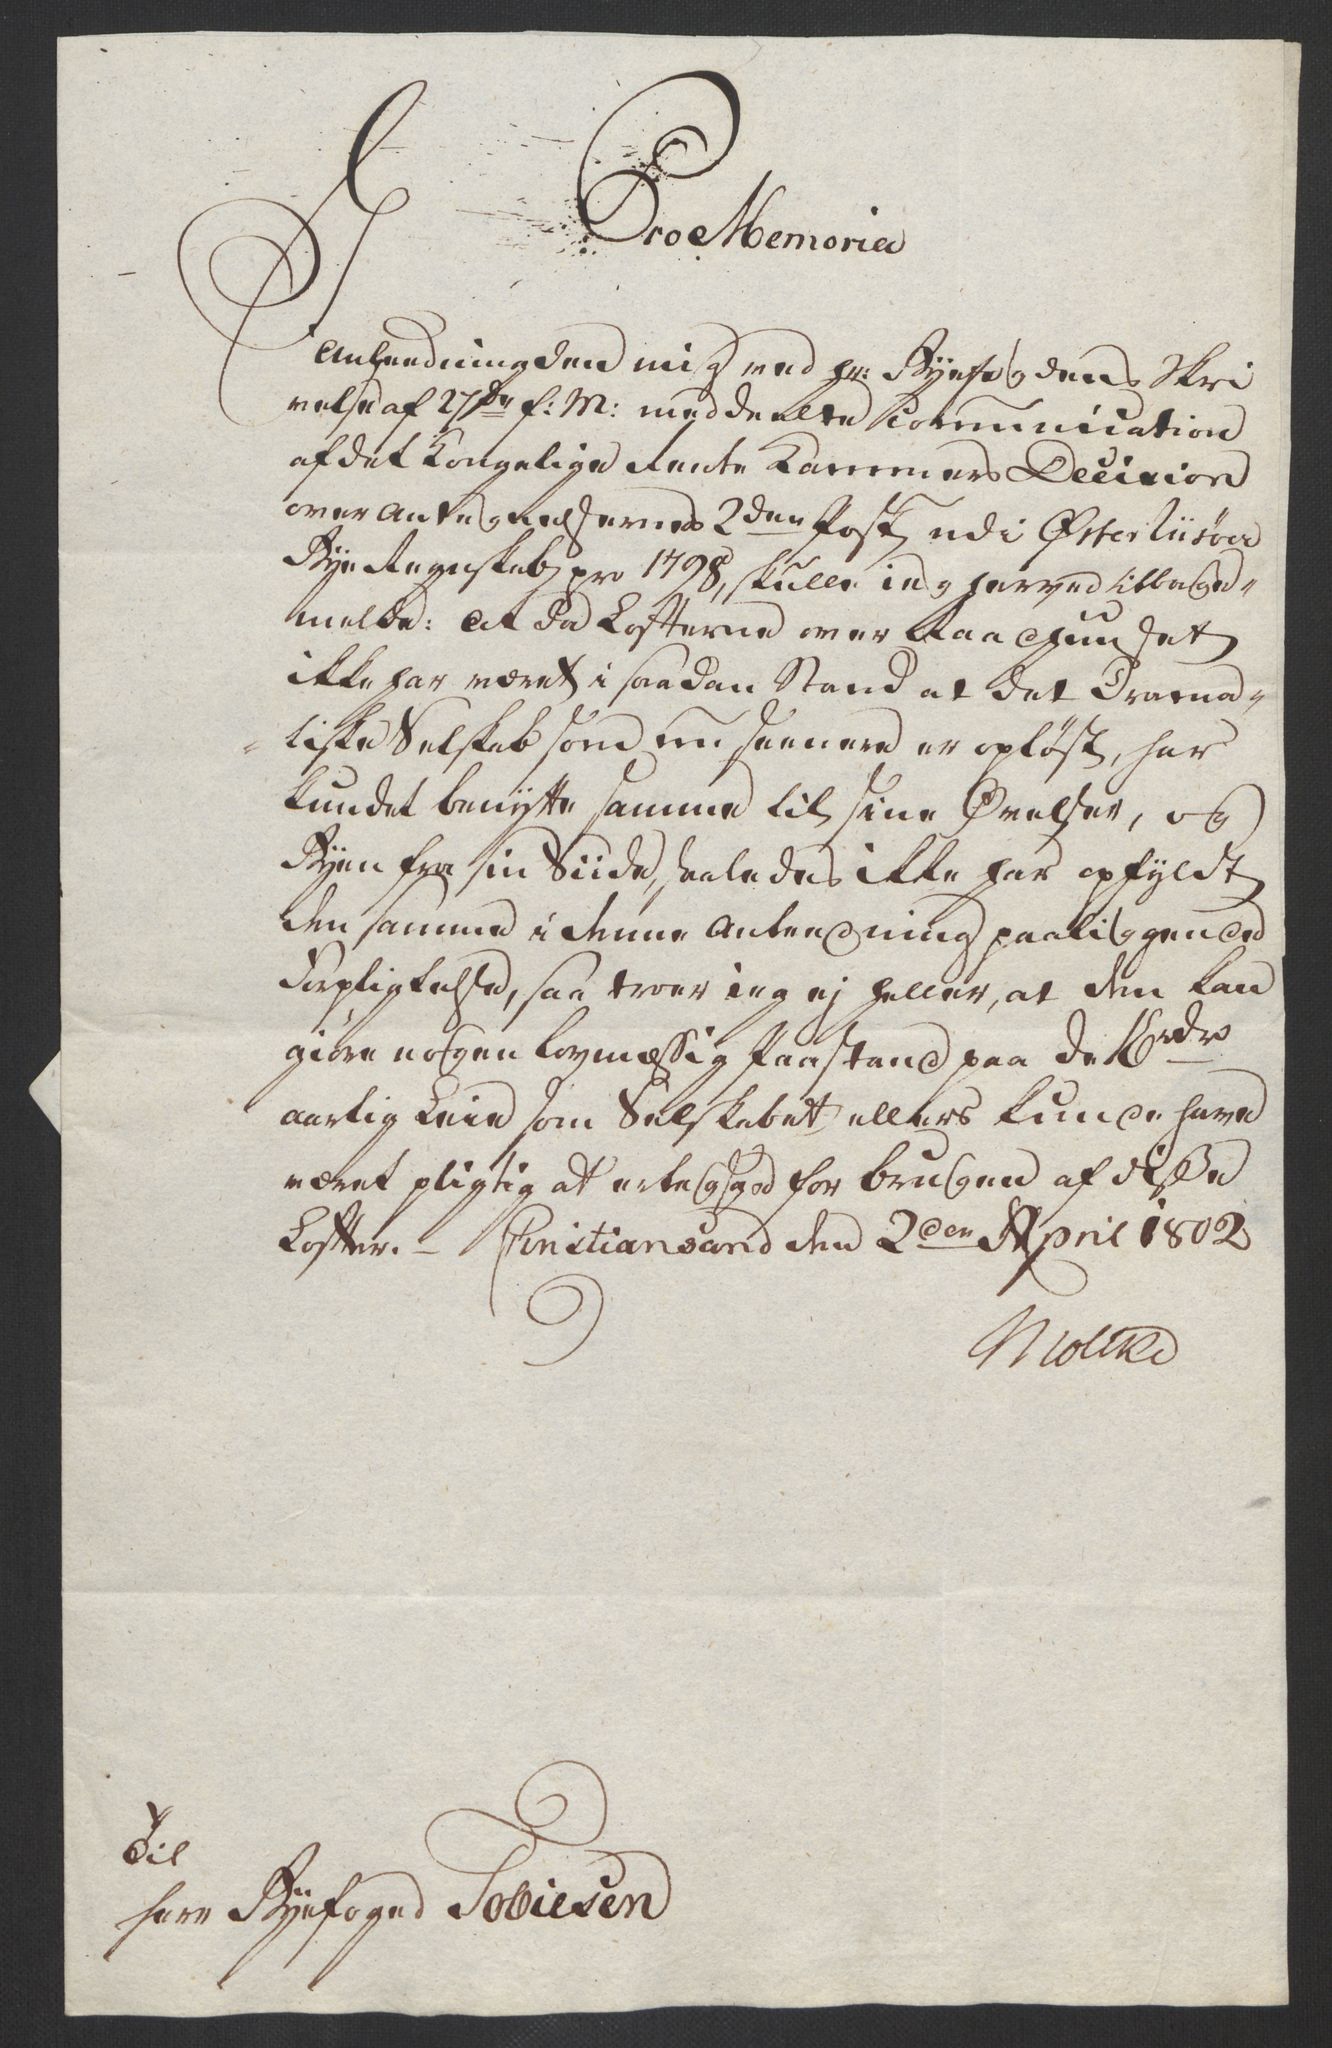 Pro Memoria
I
Anleedning den mig ved hr: Byefogdens Skri
velse af 27de f: M: meddeelte Communication
af det Kongelige Rente Kammers Decision
over Antegnelsernes 2den Post udi Østerriisøer
Bye Regnskab pro 1798, skulle ieg herved tilbage-
melde: at da Lofterne over Raadhuuset
ikke har været i saadan Stand at det Drama-
-tiske Selskab som nu seenere er opløst, har
kundet benytte samme til sine Øvelser, og
Byen fra sin Siide, saaledes ikke har opfyldt
den samme i denne Anleedning paaliggende
Forpligtelse, saa troer ieg ej heller, at den kan
giøre nogen lovmæssig Paastand paa de
aarlig Leie som Selskabet ellers kunde have
været pligtig at erlegge for brugen af disse
Lofter. - Christiansand den 2den April 1802
Moltke
Til
Herr Byefoged Tobiesen